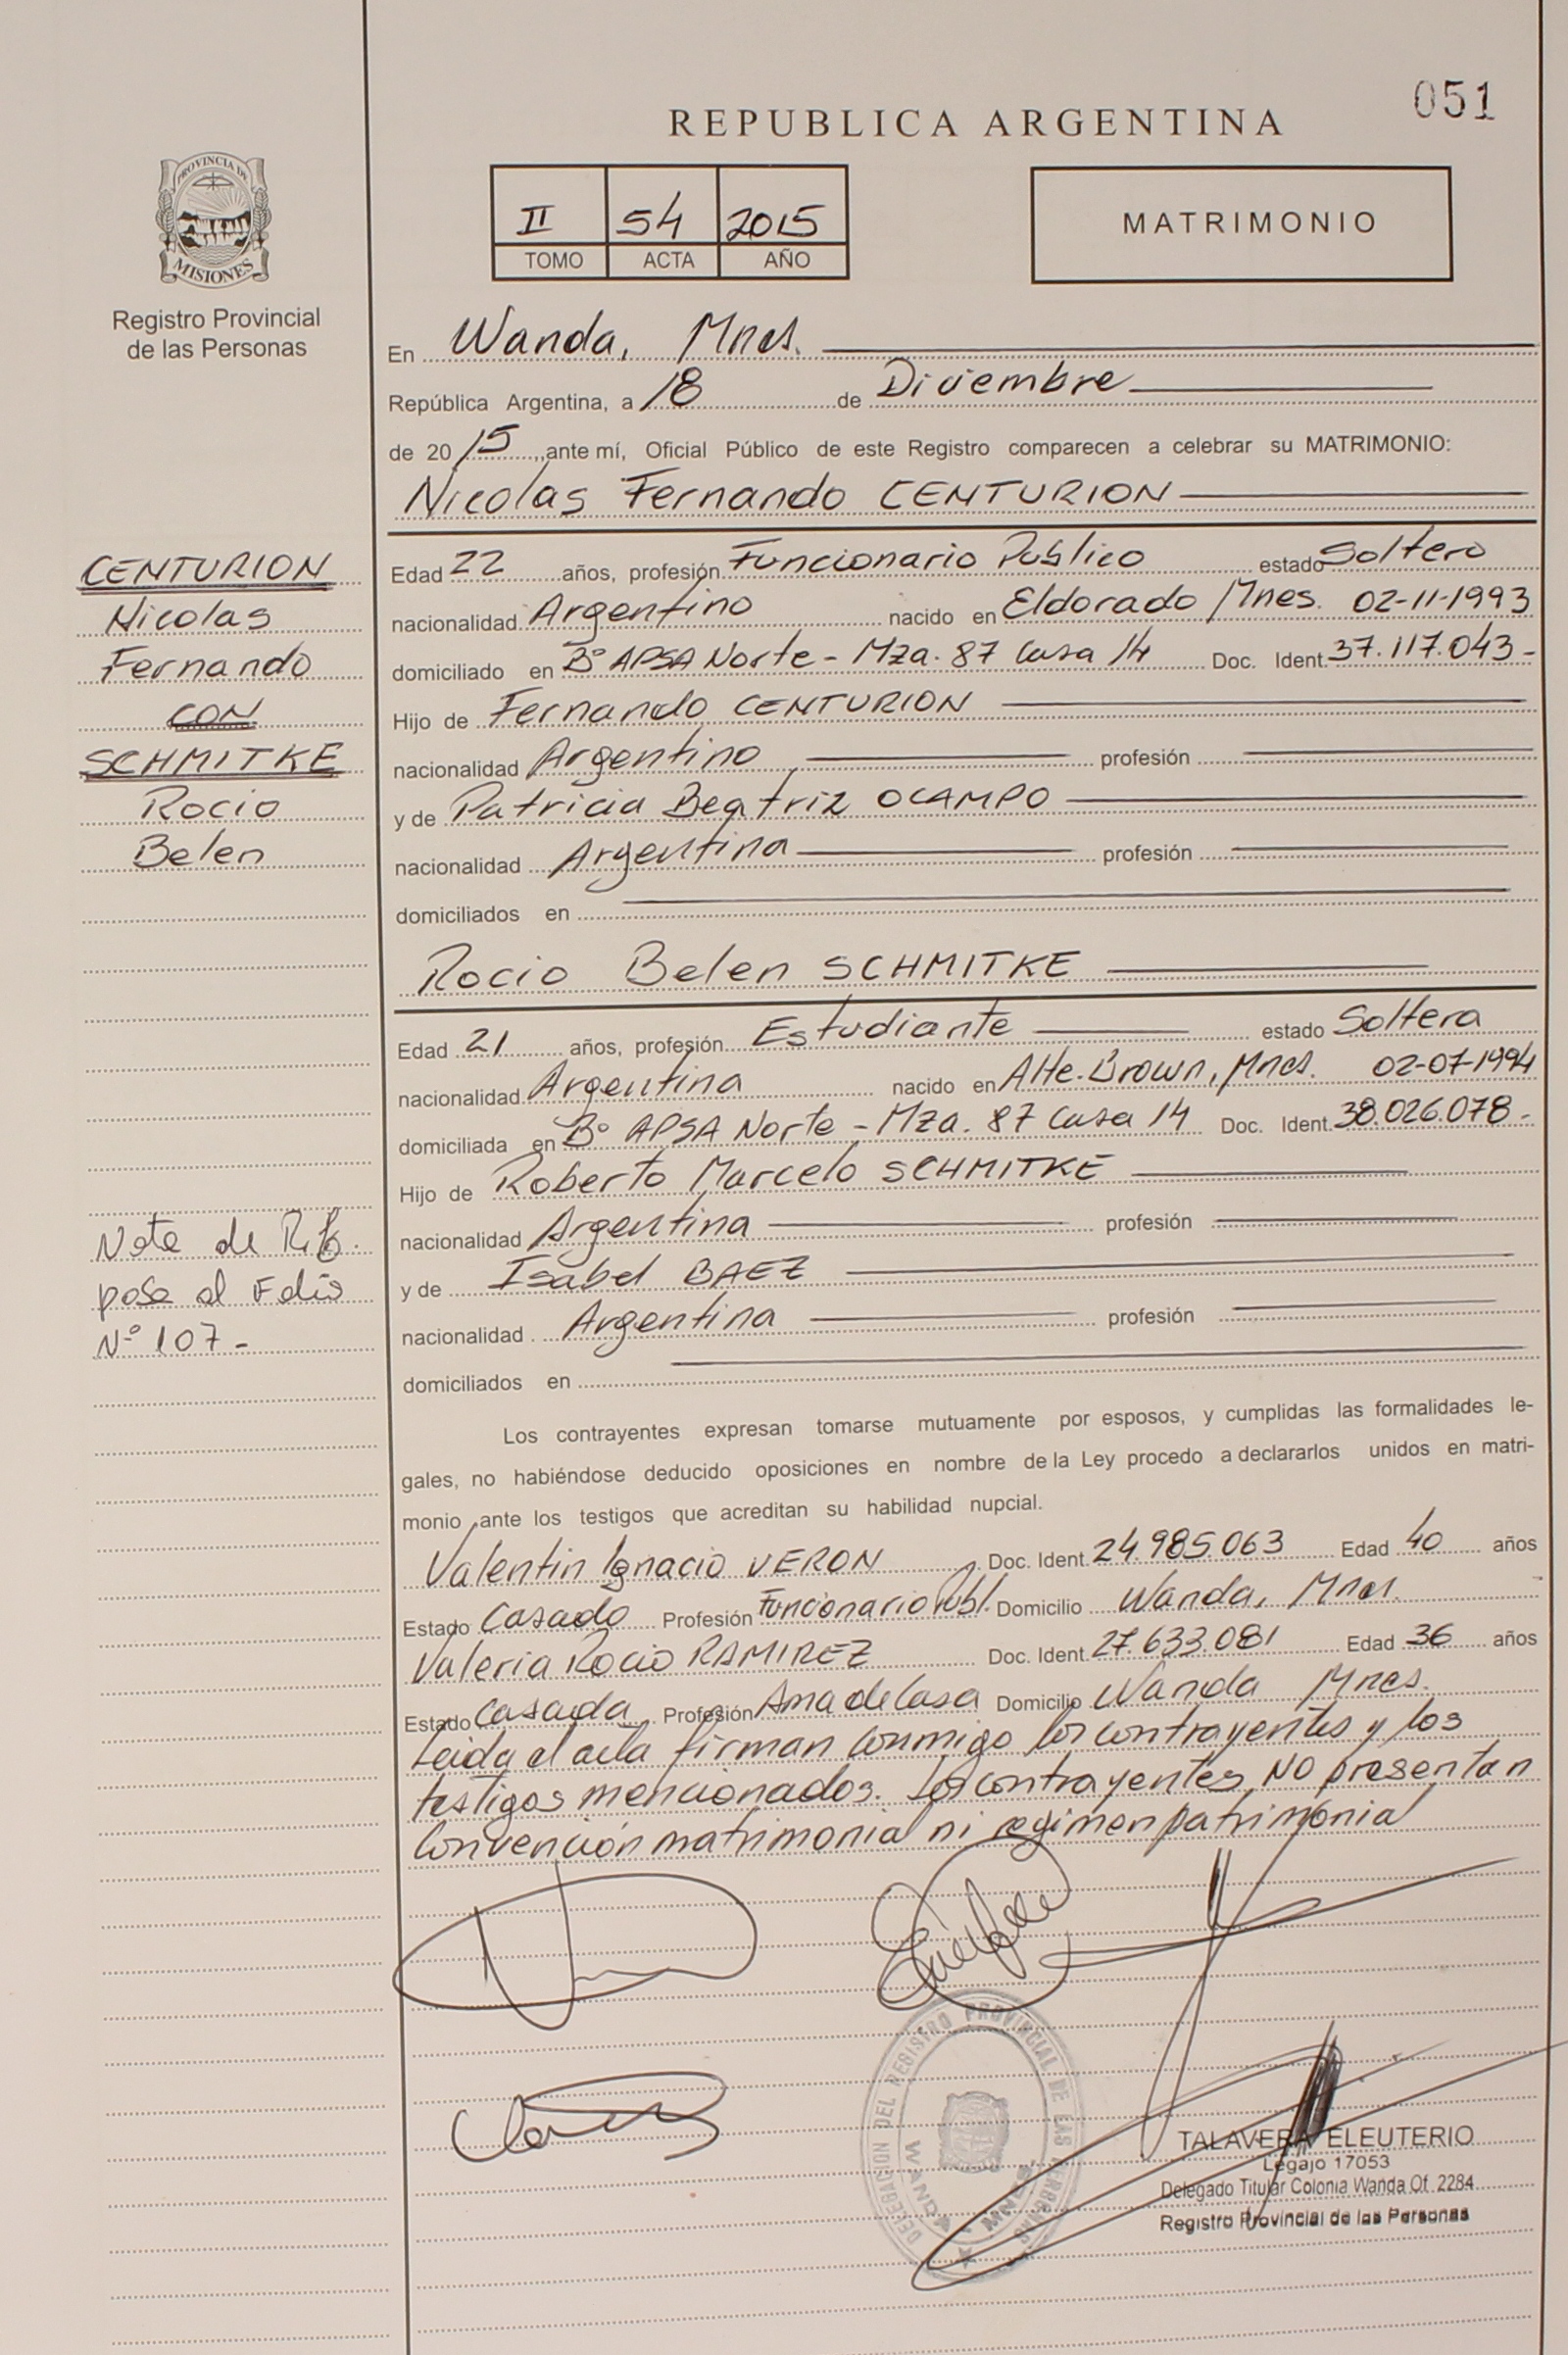 051
REPUBLICA ARGENTINA
PROVINCIA DE
MISIONES
Registro Provincial
de las Personas
II 54 2015
TOMO ACTA AÑO
MATRIMONIO
En Wanda, Mnes.
República Argentina, a 18 de Diciembre
de 20 15, ante mí, Oficial Público de este Registro comparecen a celebrar su MATRIMONIO:
Nicolas Fernando CENTURION
CENTURION
Nicolas
Fernando
CON
SCHMITKE
Rocio
Belen
Edad 22 años, profesión Funcionario Publico estado Soltero
nacionalidad Argentino nacido en Eldorado Mnes. 02-11-1993
domiciliado en B° APSA Norte - Mza. 87 Casa 14 Doc. Ident. 37.117.043-
Hijo de Fernando CENTURION
nacionalidad Argentino profesión
y de Patricia Beatriz OCAMPO
nacionalidad Argentina profesión
domiciliados en
Rocio Belen SCHMITKE
Edad 21 años, profesión Estudiante estado Soltera
nacionalidad Argentina nacido en Alte. Brown, Mnes. 02-07-1994
domiciliada en B° APSA Norte - Mza. 87 Casa 14 Doc. Ident. 38.026.078-
Hijo de Roberto Marcelo SCHMITKE
nacionalidad Argentina profesión
y de Isabel BAEZ
nacionalidad Argentina profesión
domiciliados en
Nota de
pasa al Folio
N° 107-
Los contrayentes expresan tomarse mutuamente por esposos, y cumplidas las formalidades le-
gales, no habiéndose deducido oposiciones en nombre de la Ley procedo a declararlos unidos en matri-
monio ante los testigos que acreditan su habilidad nupcial.
Valentin Ignacio VERON Doc. Ident. 24.985.063 Edad 40 años
Estado Casado Profesión Funcionario Publ. Domicilio Wanda, Mnes.
Valeria Rocio RAMIREZ Doc. Ident. 27.633.081 Edad 36 años
Estado Casada Profesión Ama de Casa Domicilio Wanda Mnes.
Leida el acta firman conmigo los contrayentes y los
testigos mencionados. Los contrayentes NO presentan
Convención matrimonial ni regimen patrimonial
DELEGACION DEL REGISTRO PROVINCIAL DE LAS PERSONAS
WANDA
TALAVERA ELEUTERIO
Legajo 17053
Delegado Titular Colonia Wanda Of. 2284
Registro Provincial de las Personas